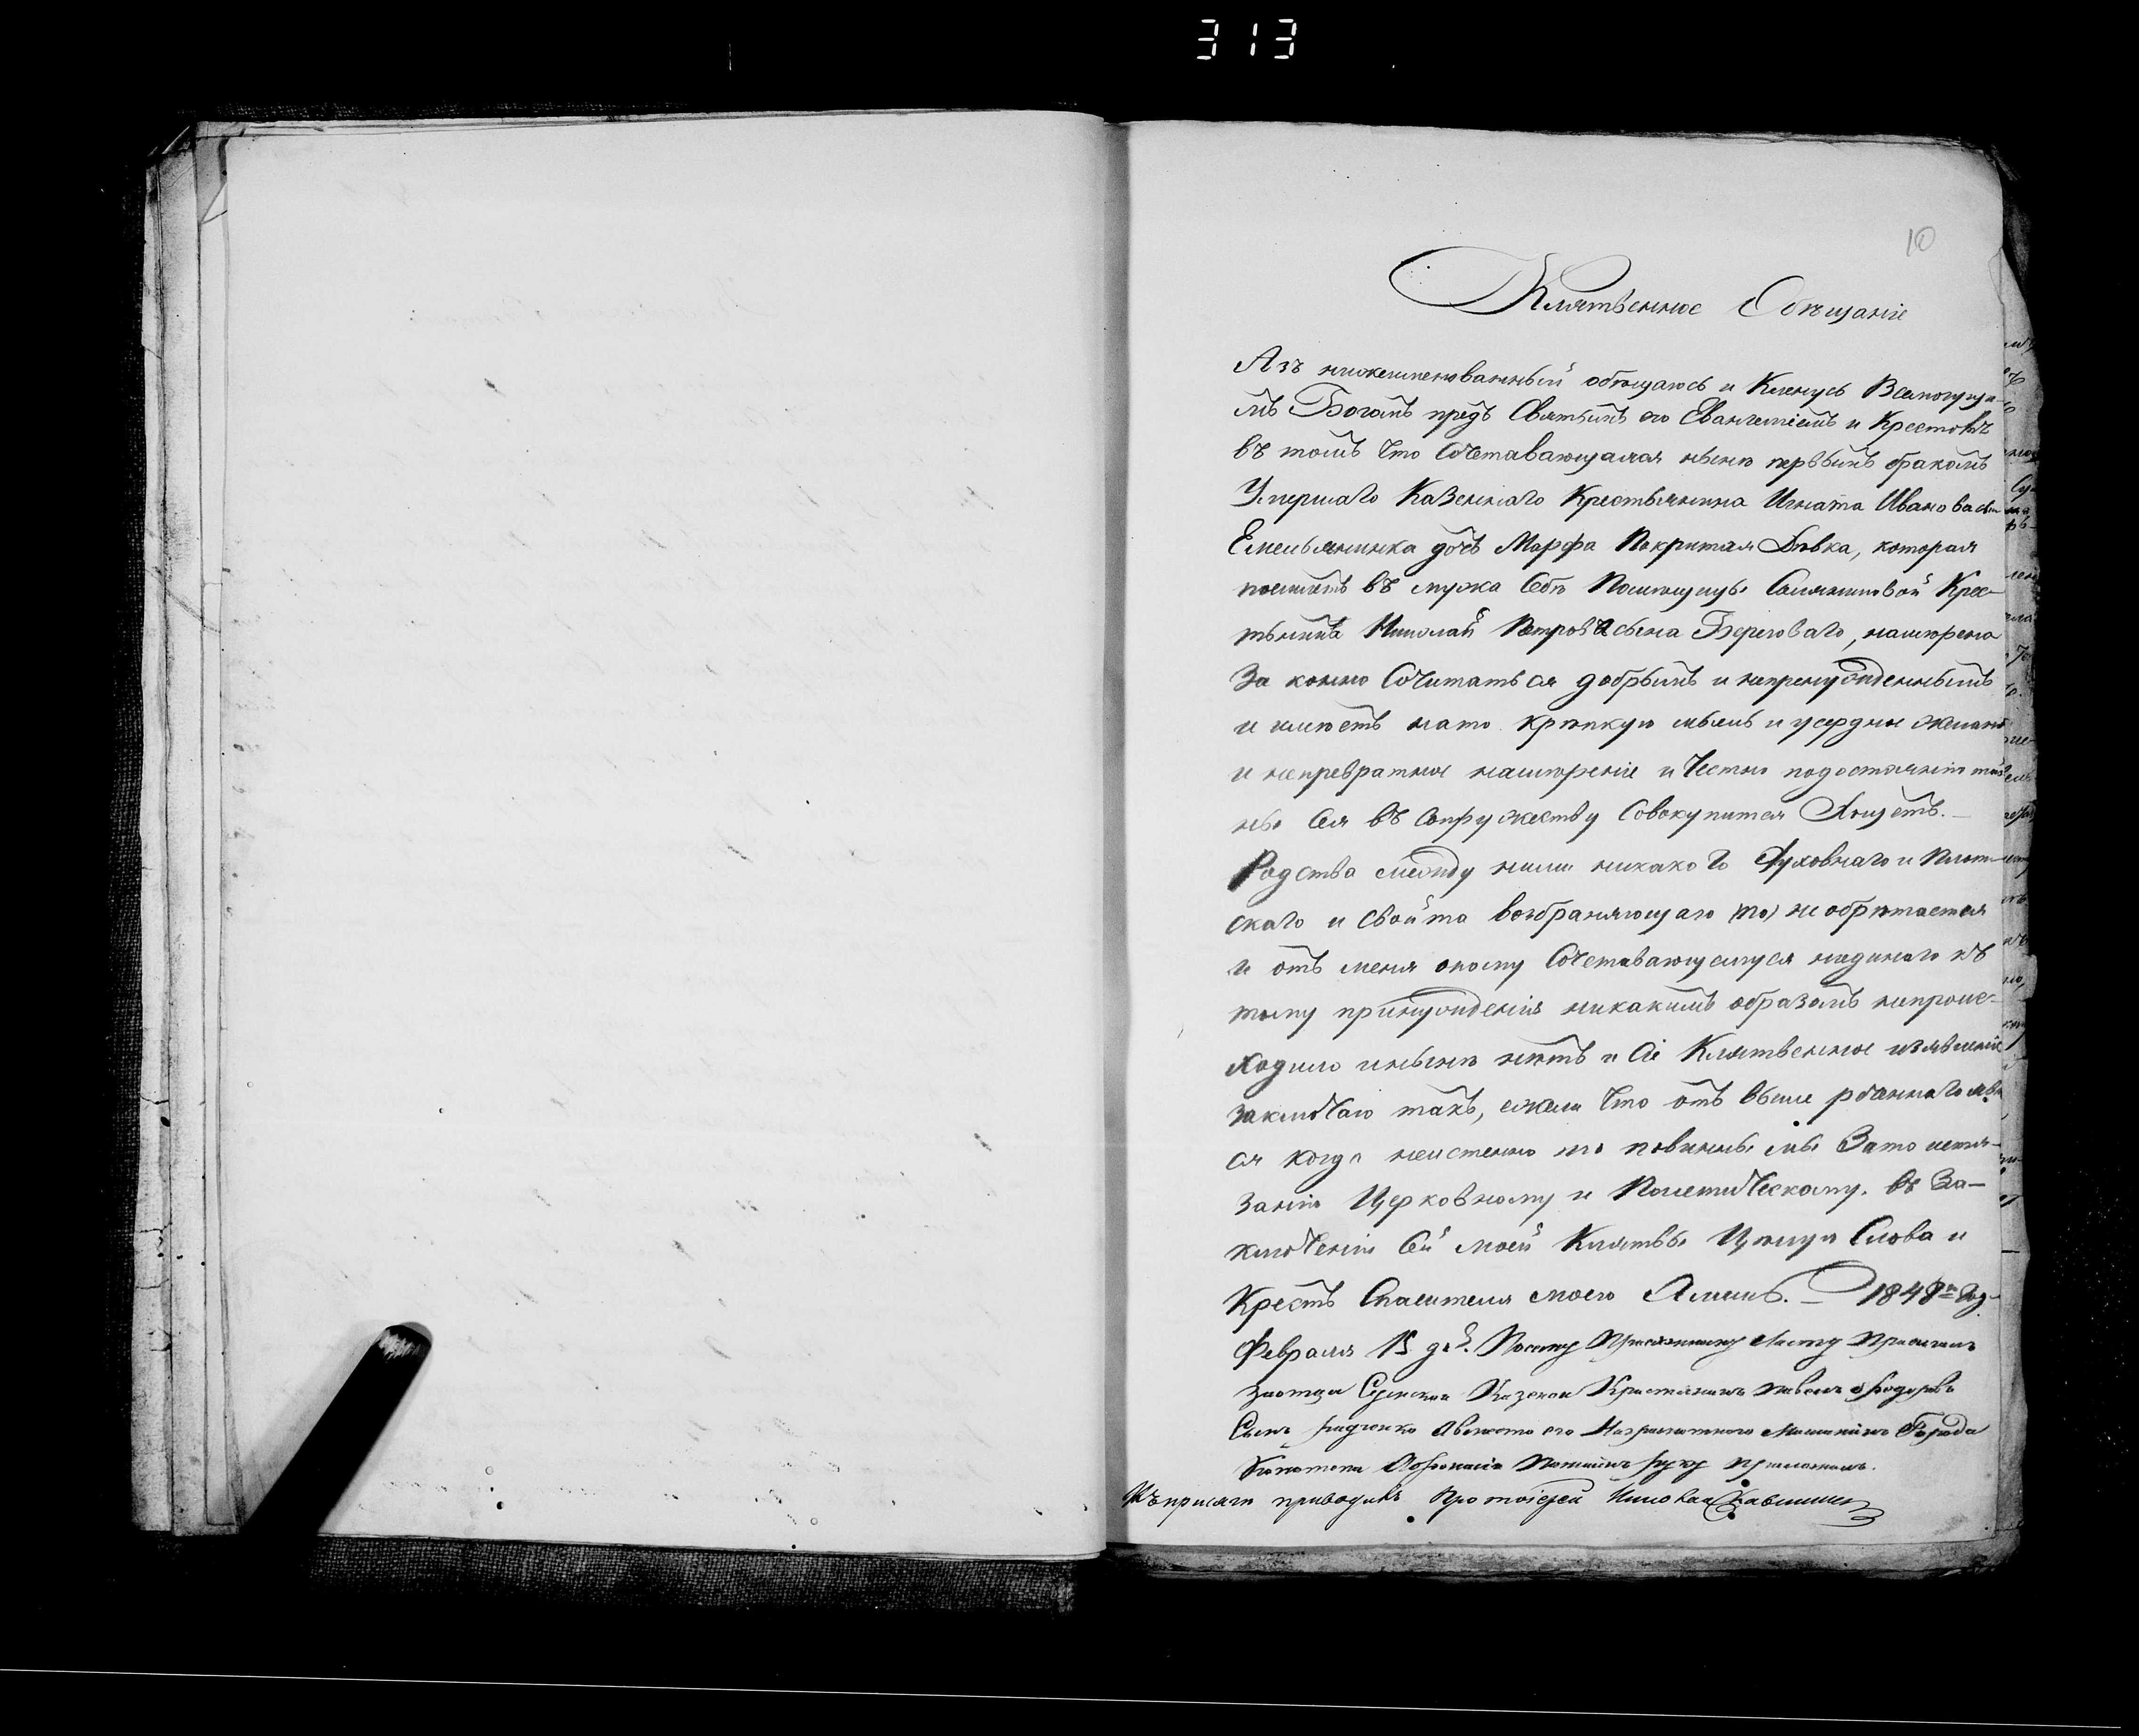 313
10
Клятвенное Обѣщаніе
Азъ нижеименованный обѣщаюсь и Кленусь Всемогущи-
мъ Богомъ предъ Святымъ его Евангеліемъ и Крестомъ
въ томъ что Сочетавающаяся нынѣ первымъ бракомъ
Умершаго Казеннаго Крестьянина Игната Иванова сын
Емельяненка дочь Марфа Покритая Дѣвка, которая
поемлетъ въ мужа Себѣ Помѣщицы Крес-
тьянина Николай Петрова сына Береговаго, намѣрена
За конно Сочитаться добрымъ и непренужденнымъ
и имѣетъ на то крѣпкую мысль и усердное желаніе
и непревратное намѣреніе и Честно по достоянію тай-
ны Сея въ Супружеству Совокупится Хощетъ. –
Родства между ними никакого Духовнаго и Плот-
скаго и Свойта возбраняющаго то) не обрѣтается
и отъ меня оному Сочетавающемуся къ
тому принужденія никакимъ образомъ непроис-
ходило и нынѣ нѣтъ и Сіе Клятвенное изявленіе
заключаю такъ, ежели что отъ выше явит
ся когда неистенно то повинны мы За то истя-
занію Церковному и Полетическому. въ За-
ключеніи Сей моей Клятвы Цѣлую Слова и
Крестъ Спасителя моего Аминь. – 1848го Год
Февраля 15 дн. Посему Присяжному Листу Присягалъ
Казеной Крестянинъ Павелъ Федоровъ
Сынъ а вместо его Неграмотного Мещанинъ Города
Конотопа руку приложилъ.
Къ присяге приводилъ Протоіерей Николай